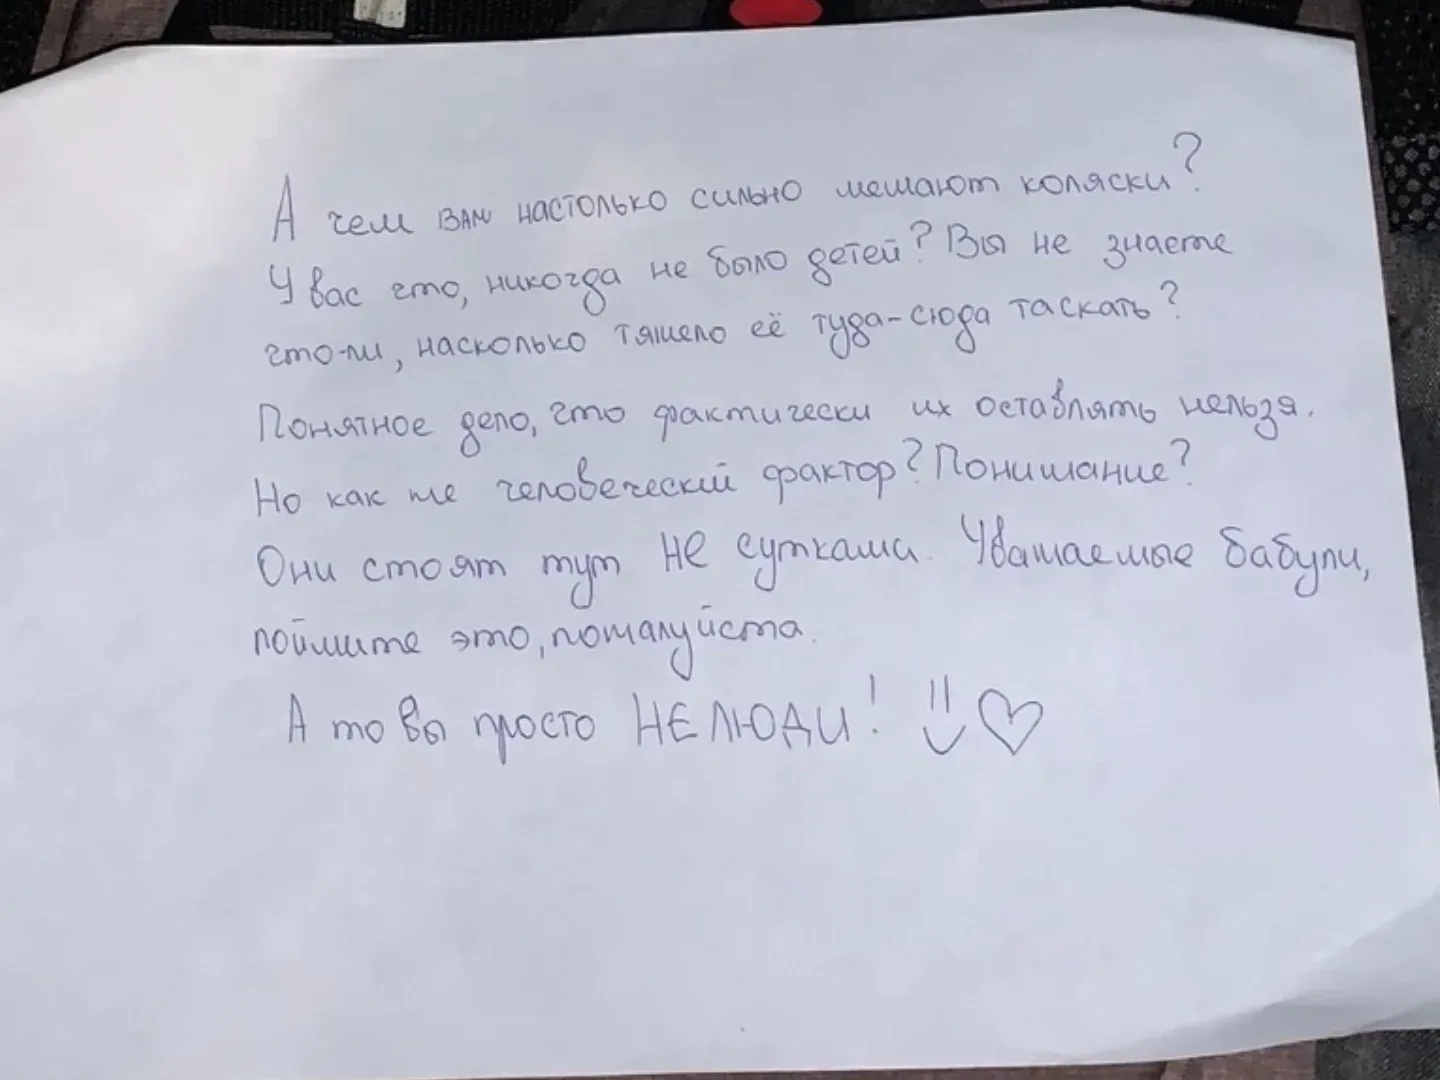 А чем вам настолько сильно мешают коляски?
У вас что, никогда не было детей? Вы не знаете
что-ли, насколько тяжело её туда-сюда таскать?
Понятное дело, что фактически их оставлять нельзя.
Но как же человеческий фактор? Понимание?
Они стоят тут не сутками. Уважаемые бабули,
поймите это, пожалуйста.
А то вы просто НЕЛЮДИ! :) ♡